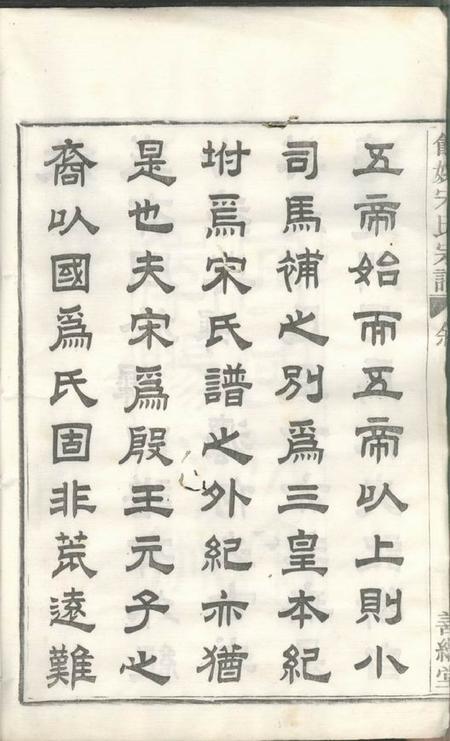 五帝始而五帝以上則小
司馬補之別爲三皇本紀
坿爲宋氏譜之外紀亦猶
是也夫宋爲殷王元子之
裔以國爲氏固非荒遠難